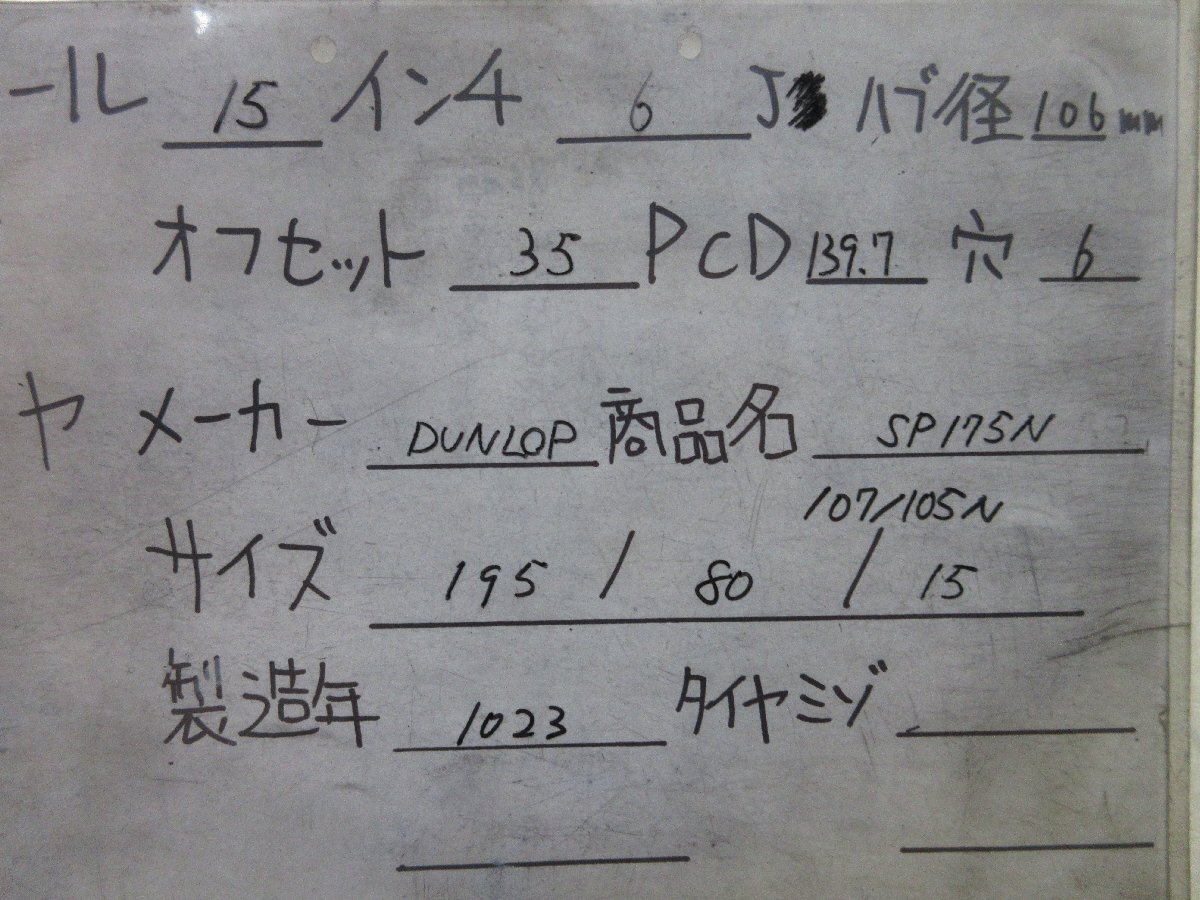 ール 15 インチ 6 J ハブ径 106 mm
オフセット 35 PCD 139.7 穴 6
ヤ メーカー DUNLOP 商品名 SP175N
107/105N
サイズ 195 / 80 / 15
製造年 1023 タイヤミゾ